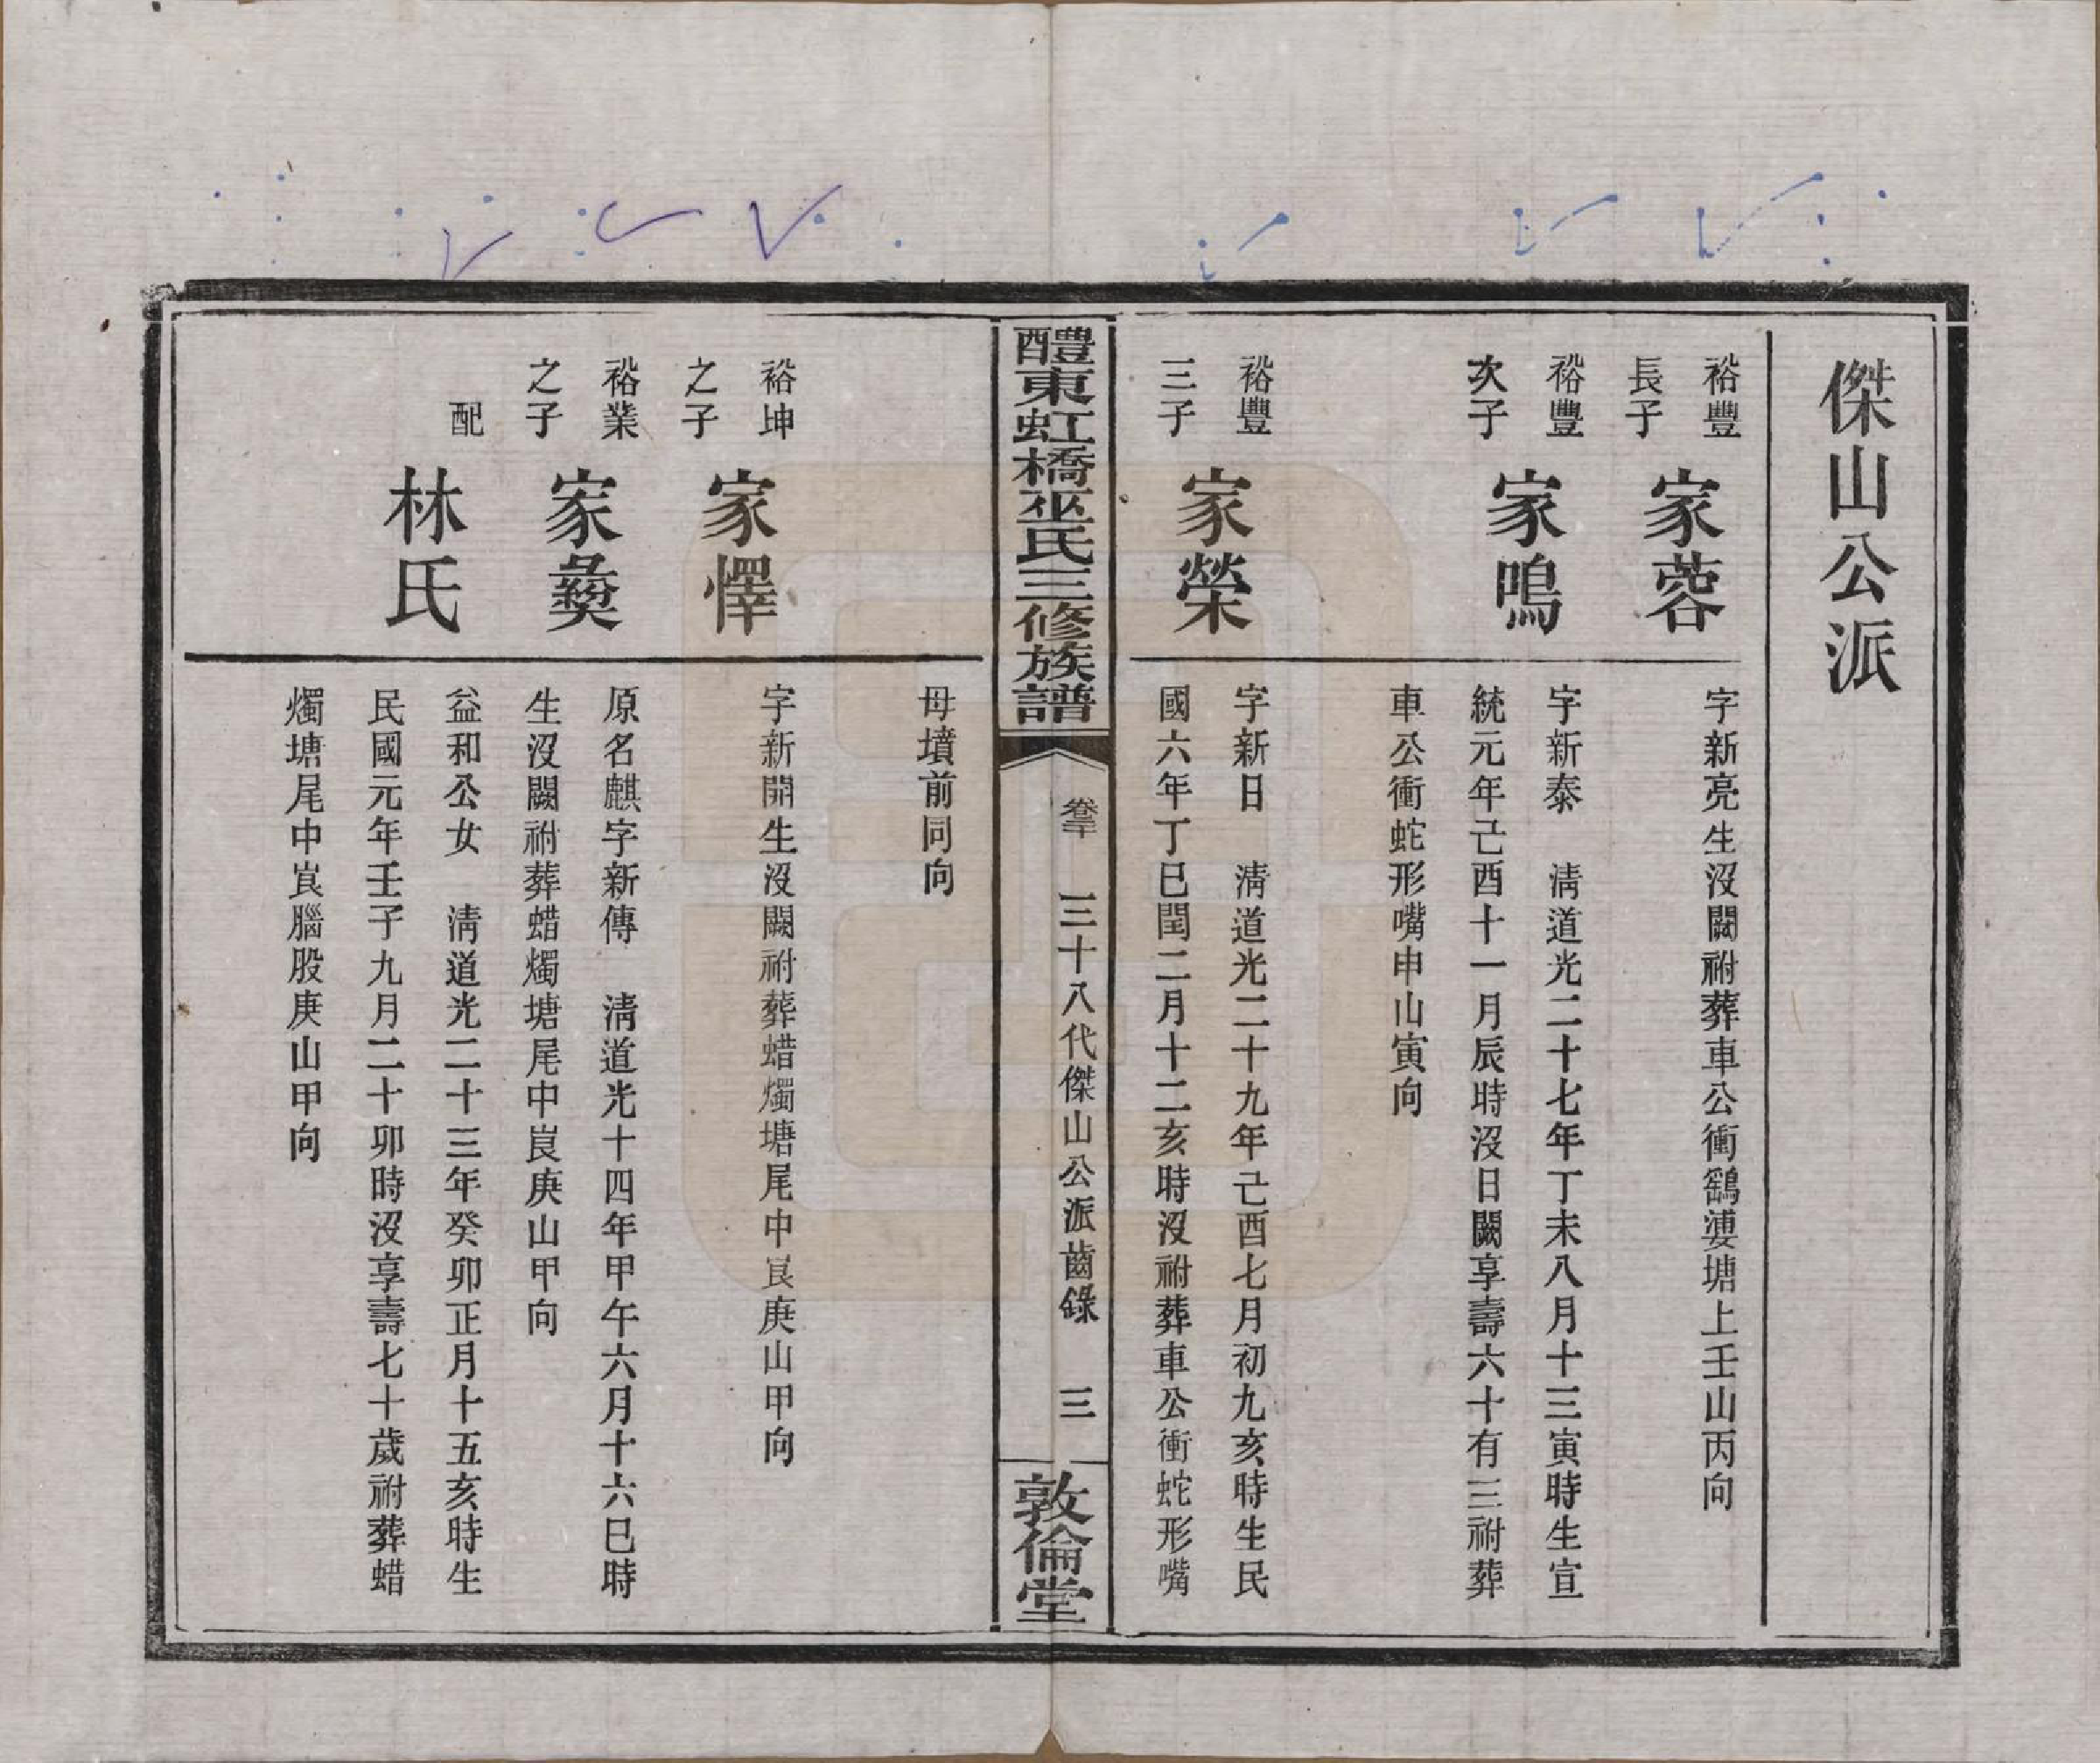 傑山公派
裕豐
長子
家蓉
字新亮生沒闕祔葬車公衝鷂婆塘上壬山丙向
裕豐
次子
家鳴
字新泰　清道光二十七年丁未八月十三寅時生宣
統元年己酉十一月辰時沒日闕享壽六十有三祔葬
車公衝蛇形嘴申山寅向
裕豐
三子
家榮
字新日　清道光二十九年己酉七月初九亥時生民
國六年丁巳閏二月十二亥時沒祔葬車公衝蛇形嘴
醴東虹橋巫氏三修族譜
卷二十　三十八代傑山公派齒錄　三
敦倫堂
母墳前同向
裕坤
之子
家懌
字新開生沒闕祔葬蜡燭塘尾中崀庚山甲向
裕業
之子
家彜
原名麒字新傳　清道光十四年甲午六月十六巳時
生沒闕祔葬蜡燭塘尾中崀庚山甲向
配
林氏
益和公女　清道光二十三年癸卯正月十五亥時生
民國元年壬子九月二十卯時沒享壽七十歲祔葬蜡
燭塘尾中崀腦股庚山甲向